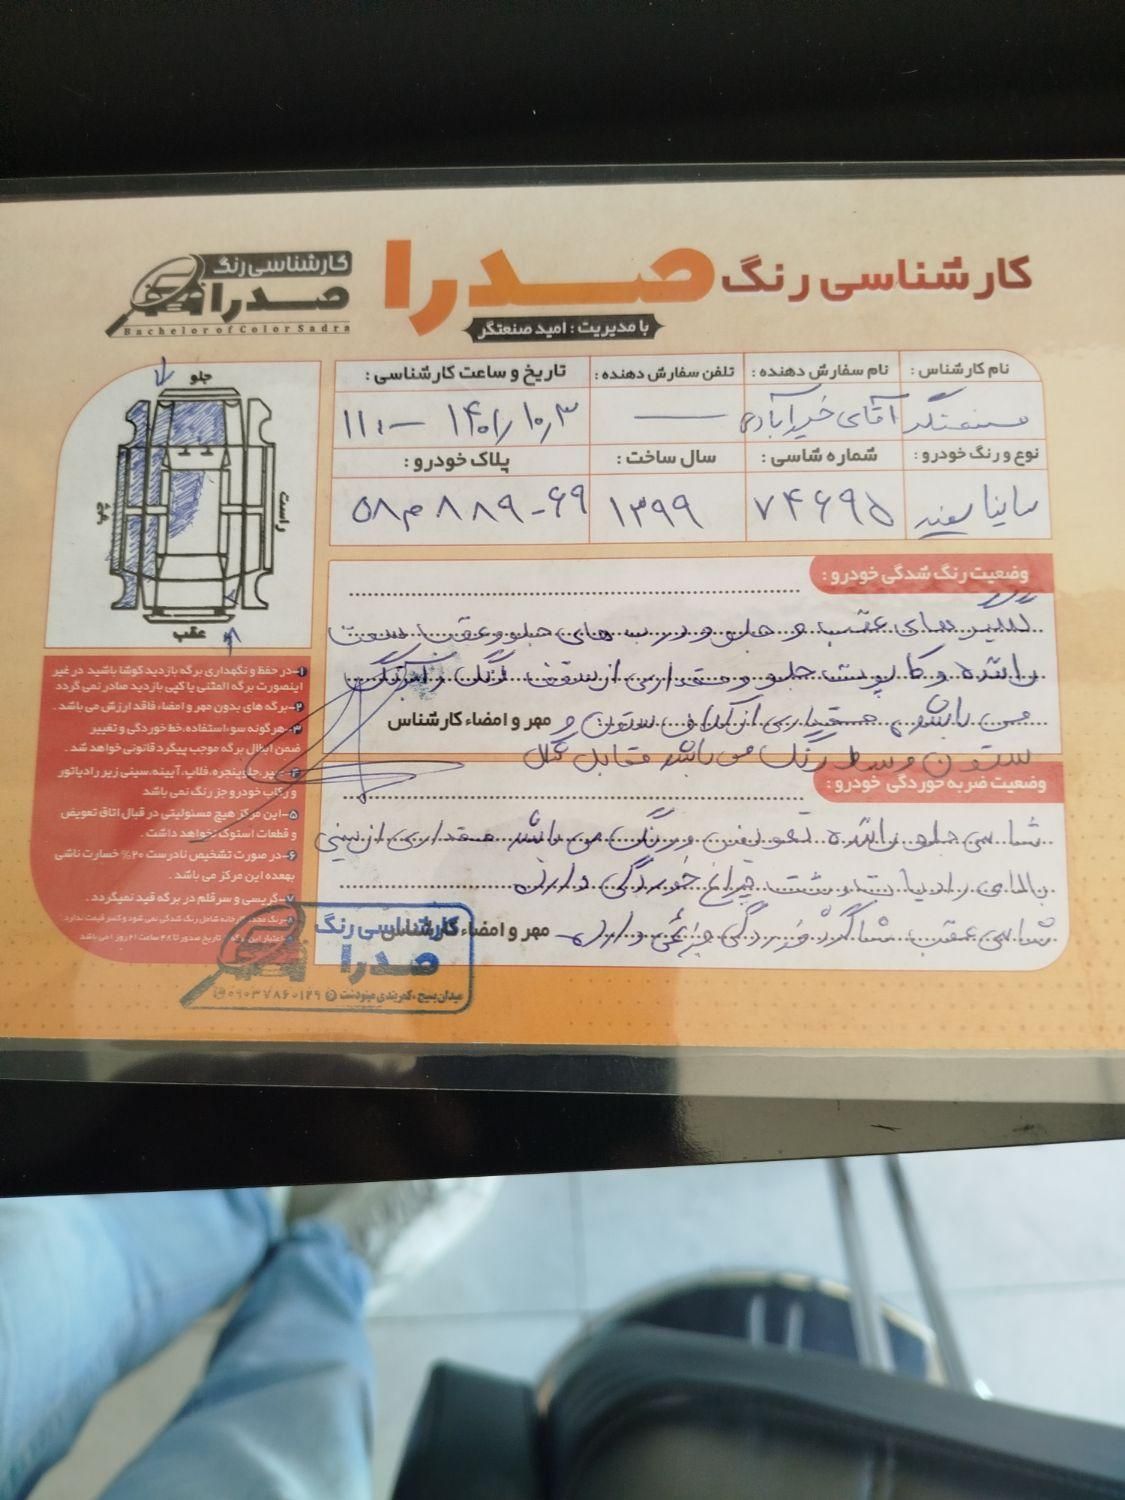 کارشناسی رنگ صدرا
با مدیریت : امید صنعتگر
کارشناسی رنگ
صدرا
Bachelor of Color Sadra
نام کارشناس :
نام سفارش دهنده :
تلفن سفارش دهنده :
تاریخ و ساعت کارشناسی :
صنعتگر
آقای خیرآبادی
—
۱۴۰۱/۱۰/۳ – ۱۱:۰
نوع و رنگ خودرو :
شماره شاسی :
سال ساخت :
پلاک خودرو :
ساینا سفید
۷۴۶۹۵
۱۳۹۹
۵۸م۸۸۹-۶۹
جلو
راست
چپ
عقب
وضعیت رنگ شدگی خودرو :
گلگیر های عقب و جلو و درب های جلو و عقب سمت
راننده و کاپوت جلو و مقداری از سقف رنگ
می باشد مقداری از کلاف ستون و
مهر و امضاء کارشناس
ستون وسط رنگ می باشد قابل
وضعیت ضربه خوردگی خودرو :
شاسی جلو راننده تعویض و رنگ می باشد مقداری از سینی
بالای رادیات و پشت چراغ خوردگی دارد
شاسی عقب شاگرد خوردگی جزئی دارد
مهر و امضاء کارشناس
۱-در حفظ و نگهداری برگه بازدید کوشا باشید در غیر
اینصورت برگه المثنی یا کپی بازدید صادر نمی گردد
۲-برگه های بدون مهر و امضاء فاقد ارزش می باشد .
۳-هرگونه سوء استفاده، خط خوردگی و تغییر
ضمن ابطال برگه موجب پیگرد قانونی خواهد شد .
۴-سپر، جلوپنجره، فلاپ، آیینه، سینی زیر رادیاتور
و رکاب خودرو جز رنگ نمی باشد
۵-این مرکز هیچ مسئولیتی در قبال اتاق تعویض
و قطعات استوک نخواهد داشت .
۶-در صورت تشخیص نادرست ۲۰% خسارت ناشی
بعهده این مرکز می باشد .
۷-گریسی و سر قلم در برگه قید نمیگردد .
کارشناسی رنگ
صدرا
میدان بسیج ، کمربندی مینودشت ۰۹۰۳۷۸۶۰۱۲۹